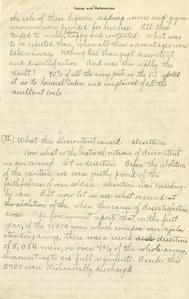 Notes and References
the sale of these liquors, reading rooms and gym-
nasiums were provided for our men. All this
tended to make happy and contented. What was
to be expected, then, when all these advantages were
taken away. Nothing less than great discontent
and dissatisfaction. And was this really the
result? 90% of all the army posts in the U.S. spoke
of it as so and complained of all the
resultant evils
(II) What this Discontent caused. Desertion
Now what is the natural outcome of discontent
in an army. It is desertion. Before the abolition
of the canteen we were justly proud of the
faithfulness of our soldiers. Desertion was exceeding-
ly rare. But now let us see what occurred at
the abolition of the when this cause of dissatisfaction
arose. The government reports that in the first
year, of the 15000 men which our regular
standing army, there was a record desertion
of 5,034 men, or over 7% of the whole army,
amounting to full regiments. Beside this
5200 were dishonorably discharged